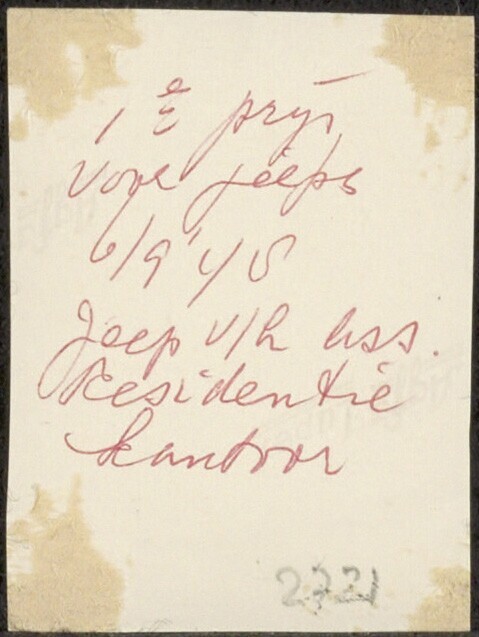 1e prijs
voor jeeps
6/9 '48
Jeep v/h ass.
Residentie
kantoor
2221